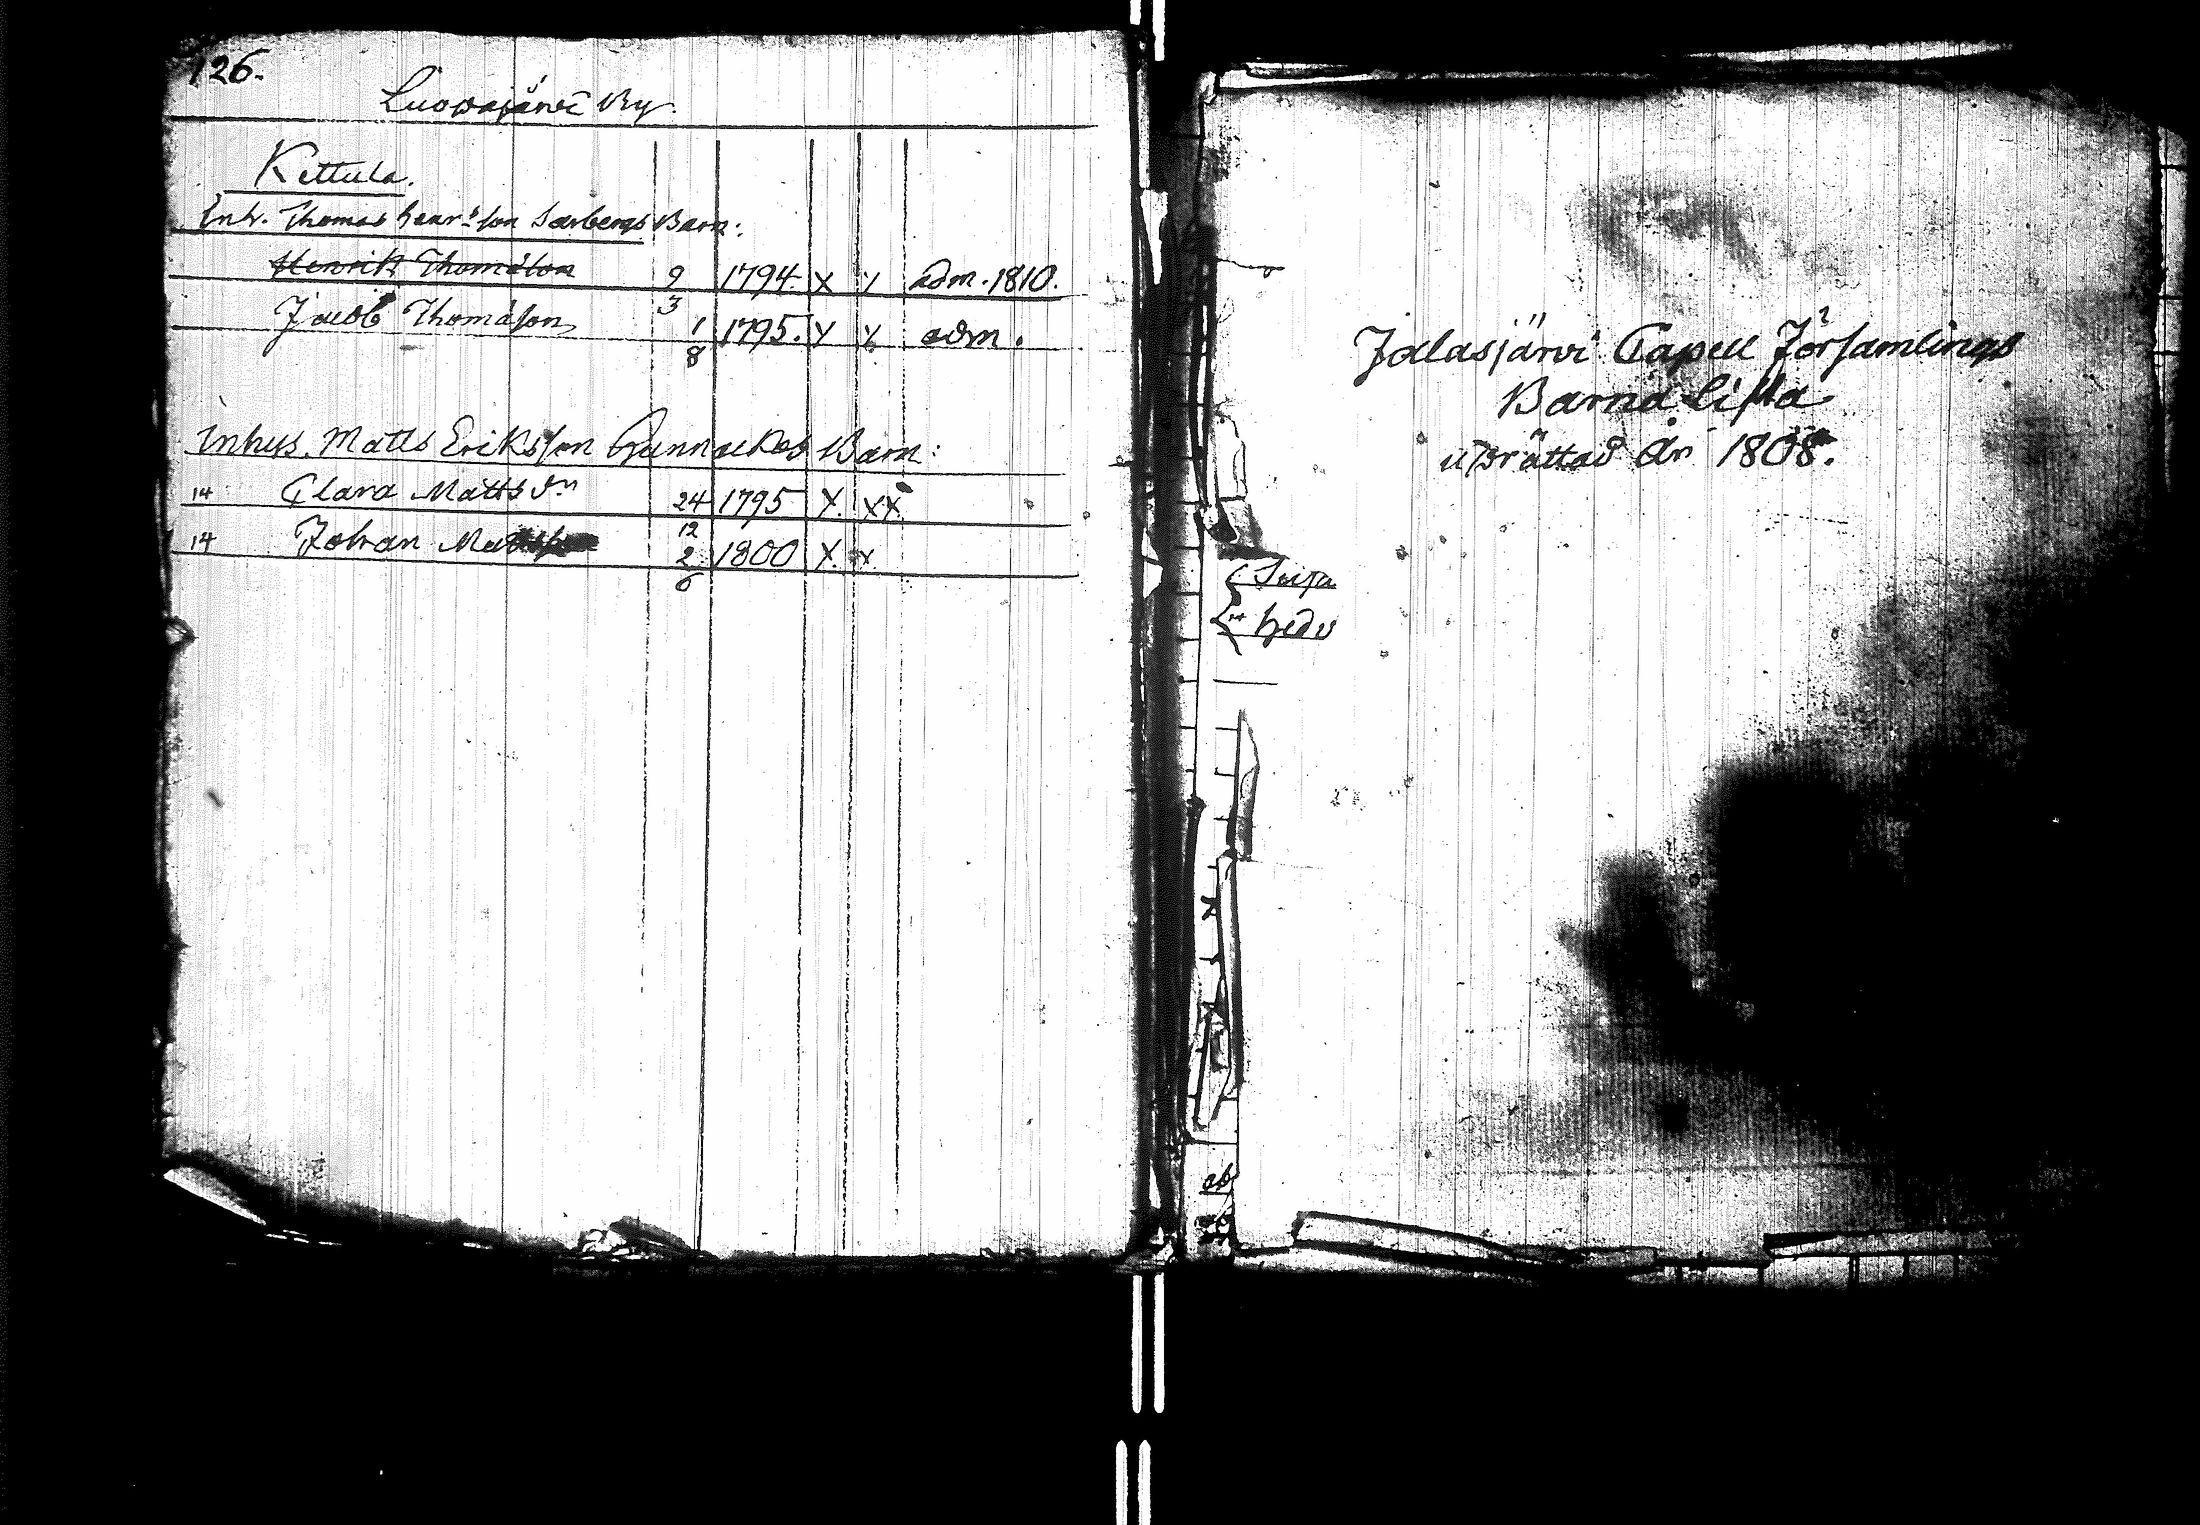 126.
Luopajärvi By.
Kettula.
Inh. Thomas Henr:s son Sarbergs Barn:
Henrik Thomasson 9 1794. X X adm. 1810.
3
Jacob Thomasson 1 1795. X X adm.
8
Inhys. Matts Eriksson Barn:
14 Clara Matts dr 24 1795 X. XX
12
14 Johan 2 1800 X. X
6
Jalasjärvi Capell Församlings
Barna Lista
uprättad år 1808.
Hedv